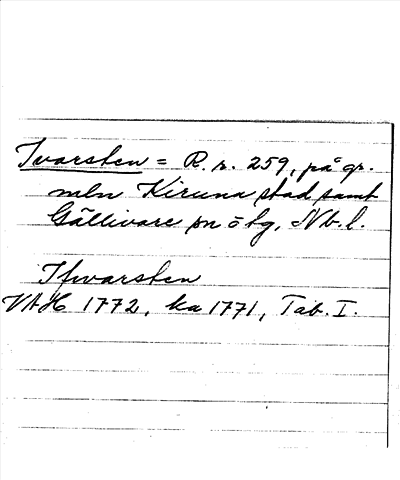 Ivarsten = R.r. 259, på gr.
mln Kiruna stad samt
Gällivare sn o tg, Nb. l.
Ifwarsten
VAH 1772, ka 1771, Tab. I.